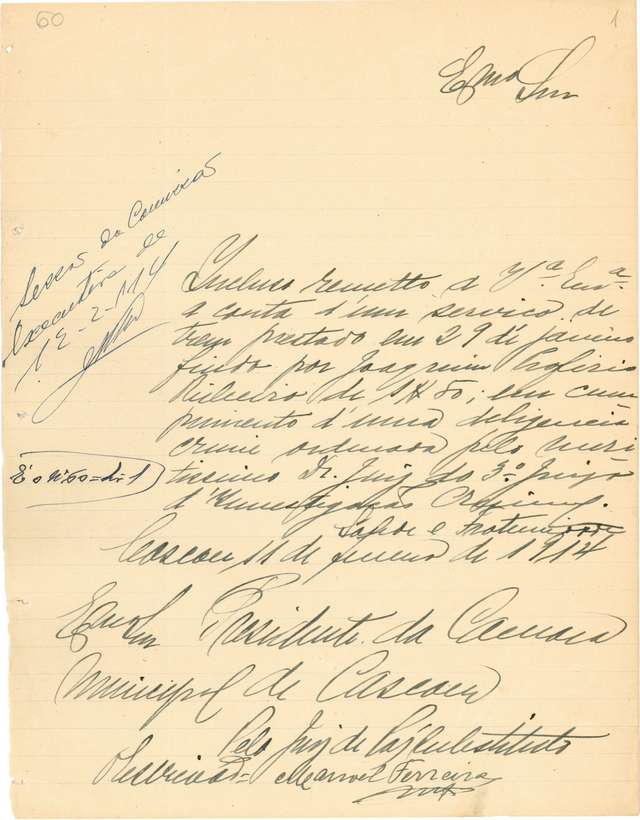 60
1
Exmo Snr
Sessão da Comissão
Executiva de
12-2-914
Incluso remetto a Vª. Exª.
a conta d'um serviço de
trem prestado em 29 de janeiro
findo por Joaquim Porfirio
Ribeiro de 1$80, em cum
primento d'uma diligencia
crime ordenada pelo meri
tissimo Dr. Juiz do 3º Juizo
d'Investigação Criminal.
É o Nº 60 = L. 1
Saude e Fraternidade
Cascaes, 11 de fevereiro de 1914
Exmo Snr Presidente da Camara
Municipal de Cascaes
Pelo Juiz de Paz substituto
Manoel Ferreira